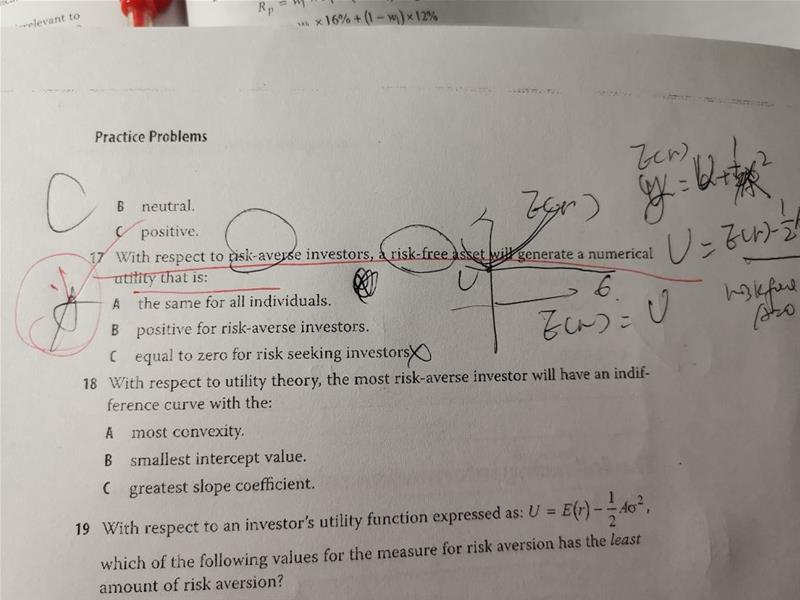 relevant to
R_p =
× 16% + (1 − w₁) × 12%
Practice Problems
B neutral.
C positive.
17 With respect to risk-averse investors, a risk-free asset will generate a numerical
utility that is:
A the same for all individuals.
B positive for risk-averse investors.
C equal to zero for risk seeking investors.
18 With respect to utility theory, the most risk-averse investor will have an indif-
ference curve with the:
A most convexity.
B smallest intercept value.
C greatest slope coefficient.
19 With respect to an investor's utility function expressed as: U = E(r) − ½Aσ²,
which of the following values for the measure for risk aversion has the least
amount of risk aversion?
C
E(r)
E(r)
U
6.
E(r) = U
U = E(r) - ½